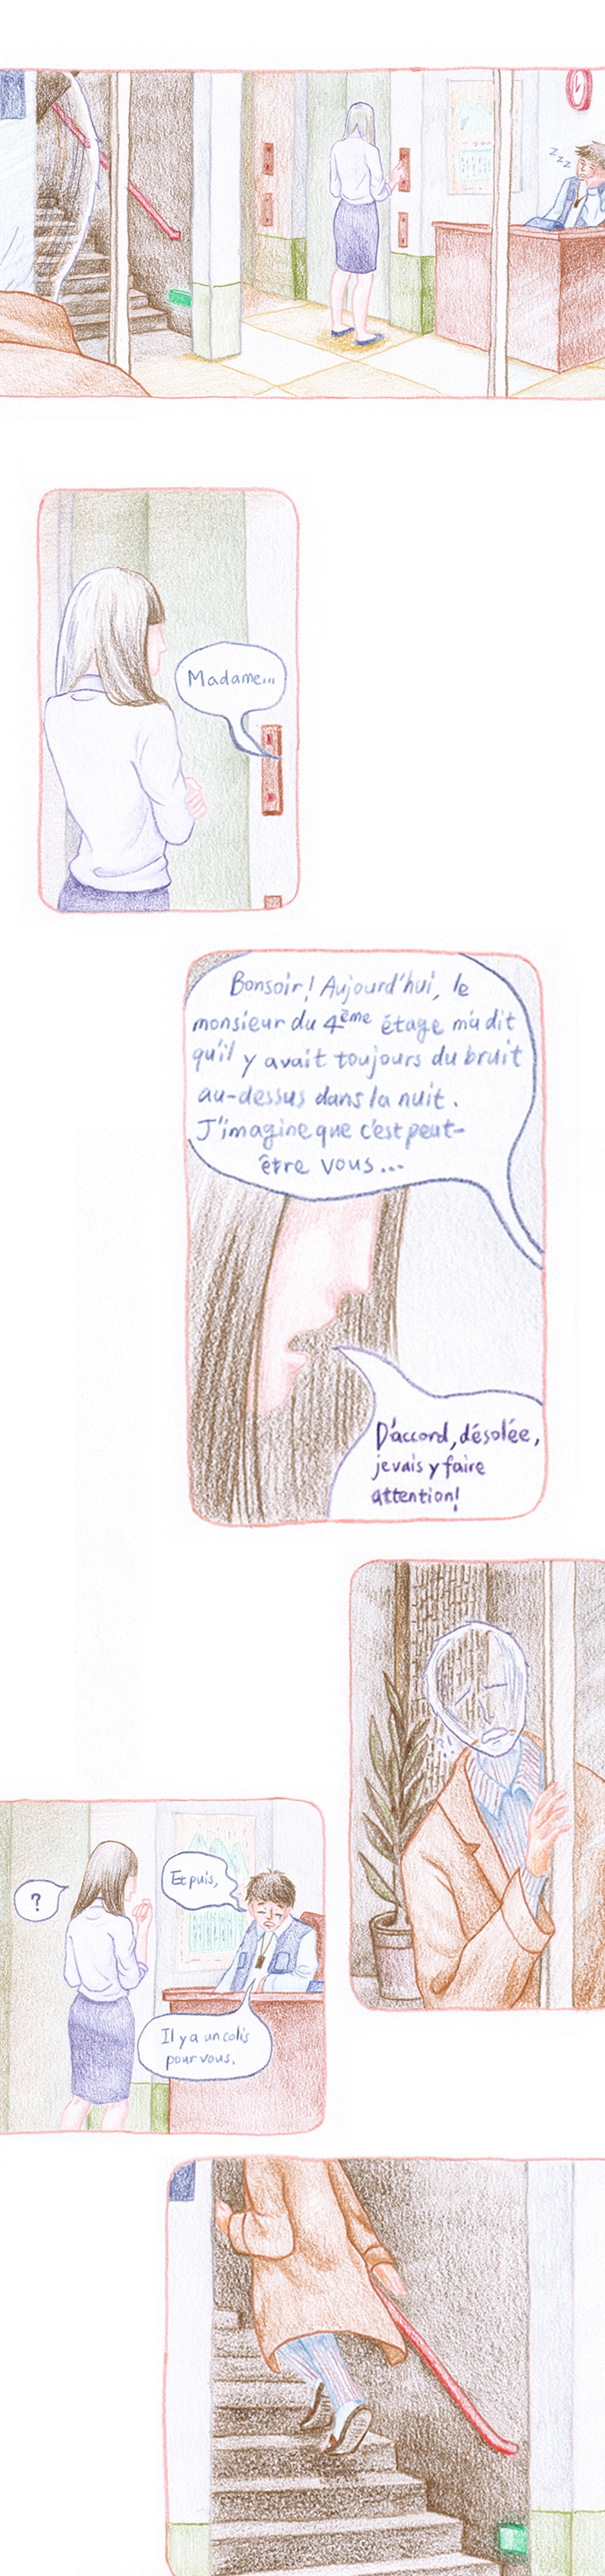 zzz
Madame...
Bonsoir! Aujourd'hui, le
monsieur du 4ème étage m'a dit
qu'il y avait toujours du bruit
au-dessus dans la nuit.
J'imagine que c'est peut-
être vous...
D'accord, désolée,
je vais y faire
attention!
?!
Et puis,
?
Il y a un colis
pour vous.